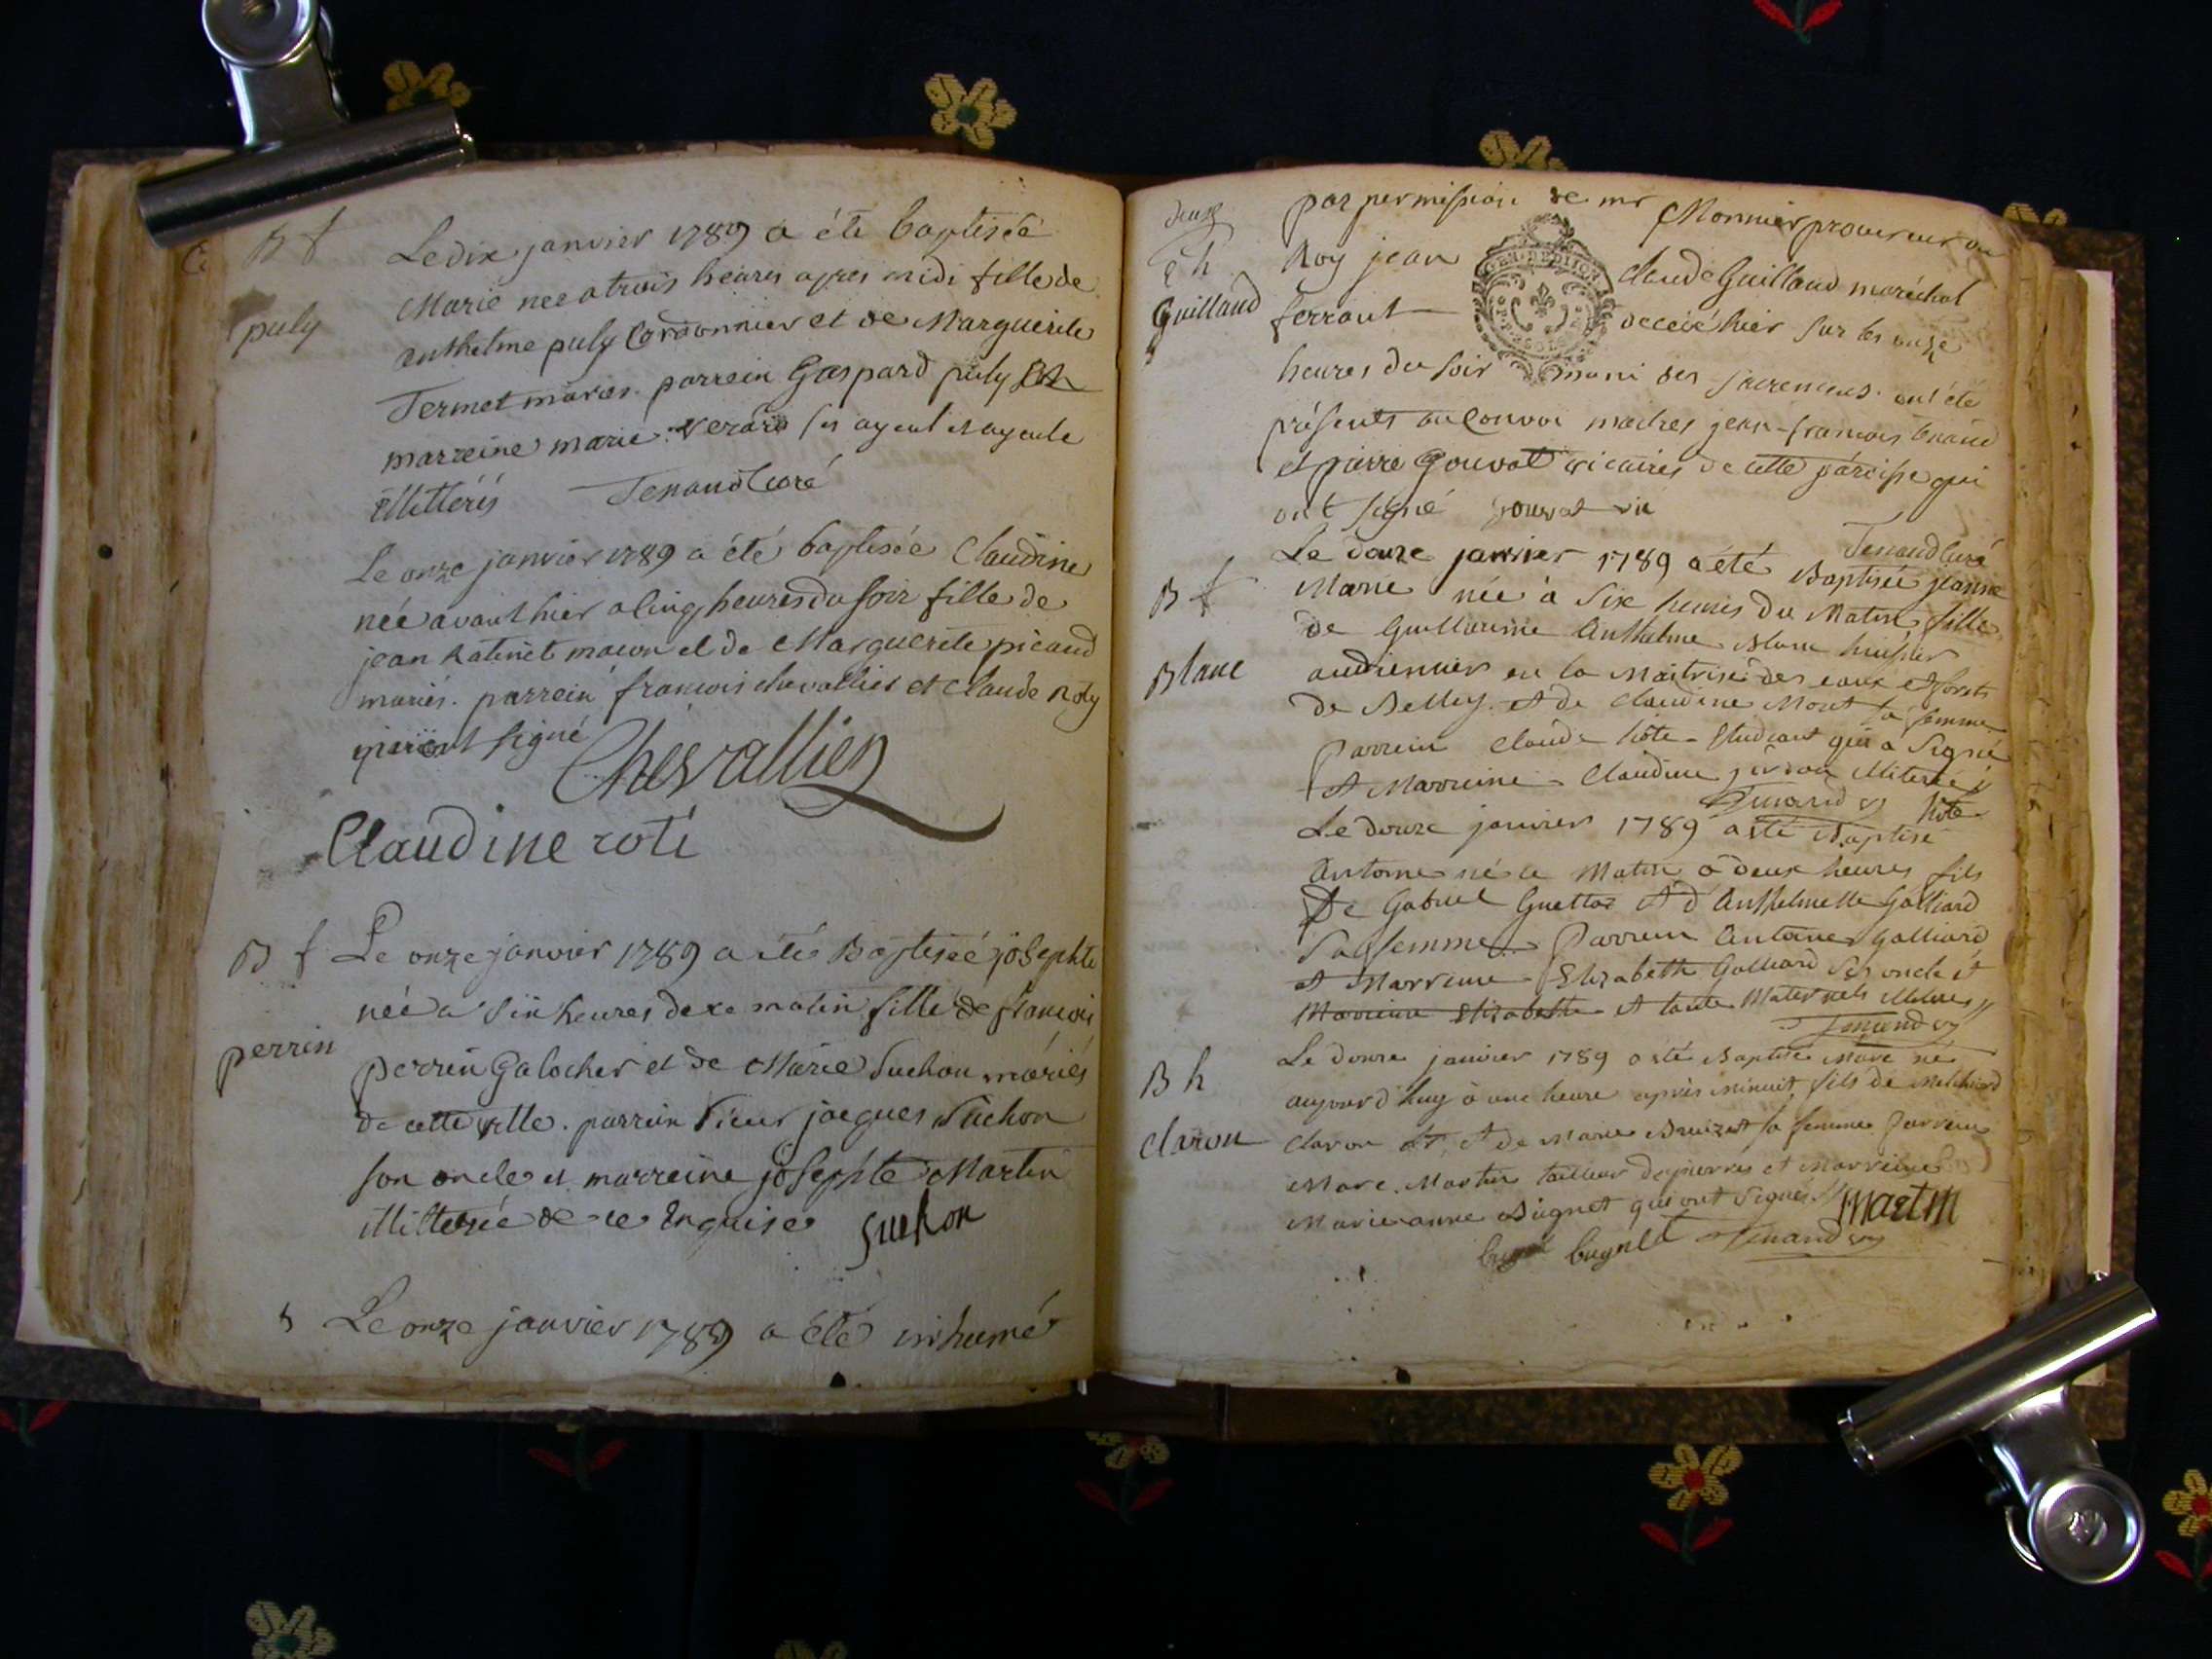 B f
puly
Le dix janvier 1789 a été baptisée
Marie née a trois heures apres midi fille de
anthelme puly Cordonnier et de Marguerite
Termet mariés. parrein Gaspard puly
marreine marie verard ses ayeul et ayeule
illitterés Tenand Curé
Le onze janvier 1789 a été baptisée Claudine
née avant hier a cinq heures du soir fille de
jean Ratinet macon et de Marguerite picaud
mariés. parrein francois chevallier et claude Roty
qui ont signé
Chevallier
Claudine roti
B f
perrin
Le onze janvier 1789 a été Baptisée josephte
née a six heures de ce matin fille de francois
perrin Galocher et de Marie Suchon mariés
de cette ville. parrein sieur jacques Suchon
son oncle et marreine josephte Martin
illitterée de ce Enquise Suchon
S Le onze janvier 1789 a été inhumé
deux
par permission de mr Monnier procureur du
h
Guilland
Roy jean claude Guilland maréchal
GEN. DE DIJON
ferrant decedé hier sur les onze
heures du soir muni des sacremens. ont été
présents au Convoi maitres jean-francois tenand
et pierre Gouvat vicaires de cette paroisse qui
ont signé gouvat vic
Tenand Curé
B f
Blanc
Le douze janvier 1789 a été Baptisée jeanne
Marie née à six heures du Matin fille
de Guillaume Anthelme Blanc huissier
audiencier en la Maitrise des eaux et forets
de Belley. et de Claudine Mont sa femme
Parrein Claude hôte Etudiant qui a Signé
et Marreine Claudine illiterée
Tenand hôte
Le douze janvier 1789 a été Baptisé
Antoine né ce Matin a deux heures fils
De Gabriel Guettaz et d'Anthelmette Galliard
Sa femme Parrein Antoine Galliard
et Marreine Elizabeth Galliard Ses oncle et
Marreine Elizabeth et tante Maternels
Tenand
B h
Claron
Le douze janvier 1789 a été Baptisé Marc né
aujourd'huy à une heure après Minuit, fils de Melchiord
Claron et de Marie sa femme Parrein
Marc Martin tailleur de pierres et Marreine
Marie anne Buignet qui ont Signés Martin
buynet Tenand